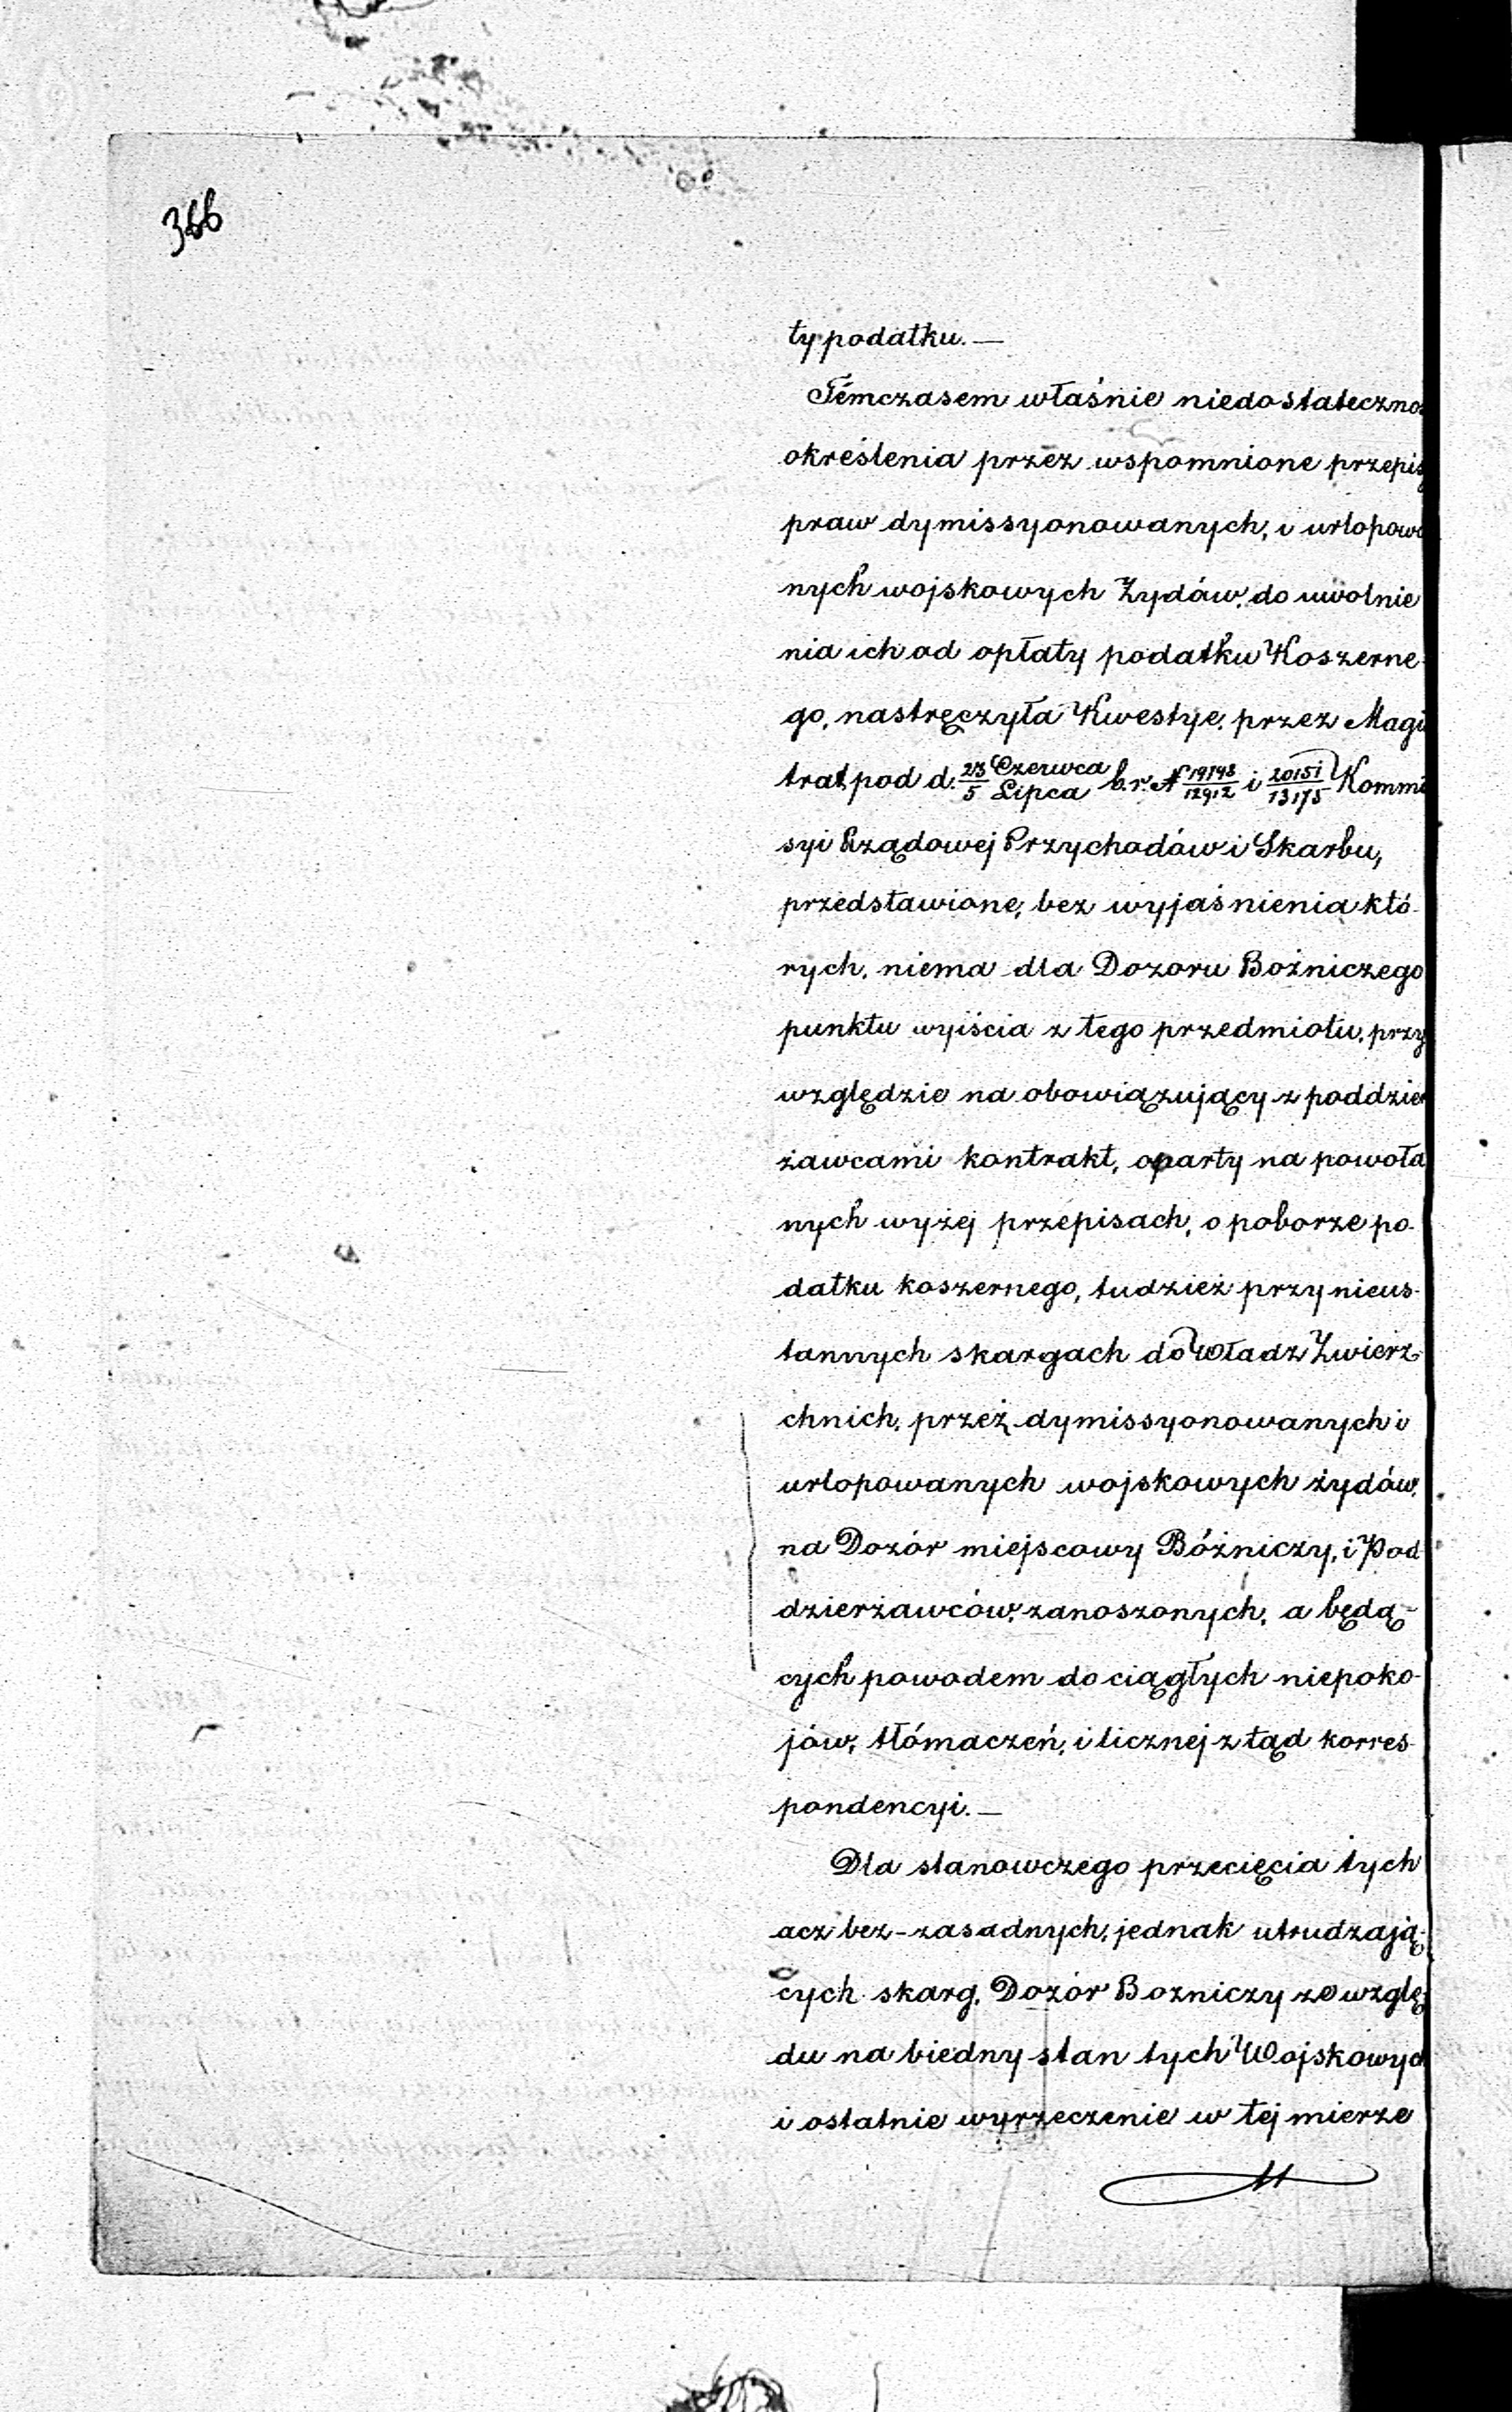 366
ty podatku. —
Témczasem właśnie niedostateczno
określenia przez wspomnione przepisy
praw dymissyonowanych, i urlopowa
nych wojskowych Żydów, do uwolnie
nia ich od opłaty podatku Koszerne-
go, nastręczyła Kwestye, przez Magi
trat pod d. 23/5 Czerwca/Lipca b.r. № 19748/12912 i 20151/13175 Kommi
syi Rządowej Przychodów i Skarbu,
przedstawione, bez wyjaśnienia któ-
rych, niema dla Dozoru Bożniczego
punktu wyiścia z tego przedmiotu, przy
względzie na obowiązujący z poddzier
żawcami kontrakt, oparty na powoła
nych wyżej przepisach, o poborze po-
datku koszernego, tudzież przy nieus-
tannych skargach do Władz Zwierz-
chnich, przez dymissyonowanych i
urlopowanych wojskowych żydów,
na Dozór miejscowy Bóżniczy, i Pod
dzierżawców, zanoszonych, a będą-
cych powodem do ciągłych niepoko-
jów, tłómaczeń, i licznej ztąd korres-
pondencyi. —
Dla stanowczego przecięcia tych
acz bez-zasadnych, jednak utrudzają-
cych skarg, Dozór Bozniczy ze wzglę
du na biedny stan tych Wojskowych
i ostatnie wyrzeczenie w tej mierze